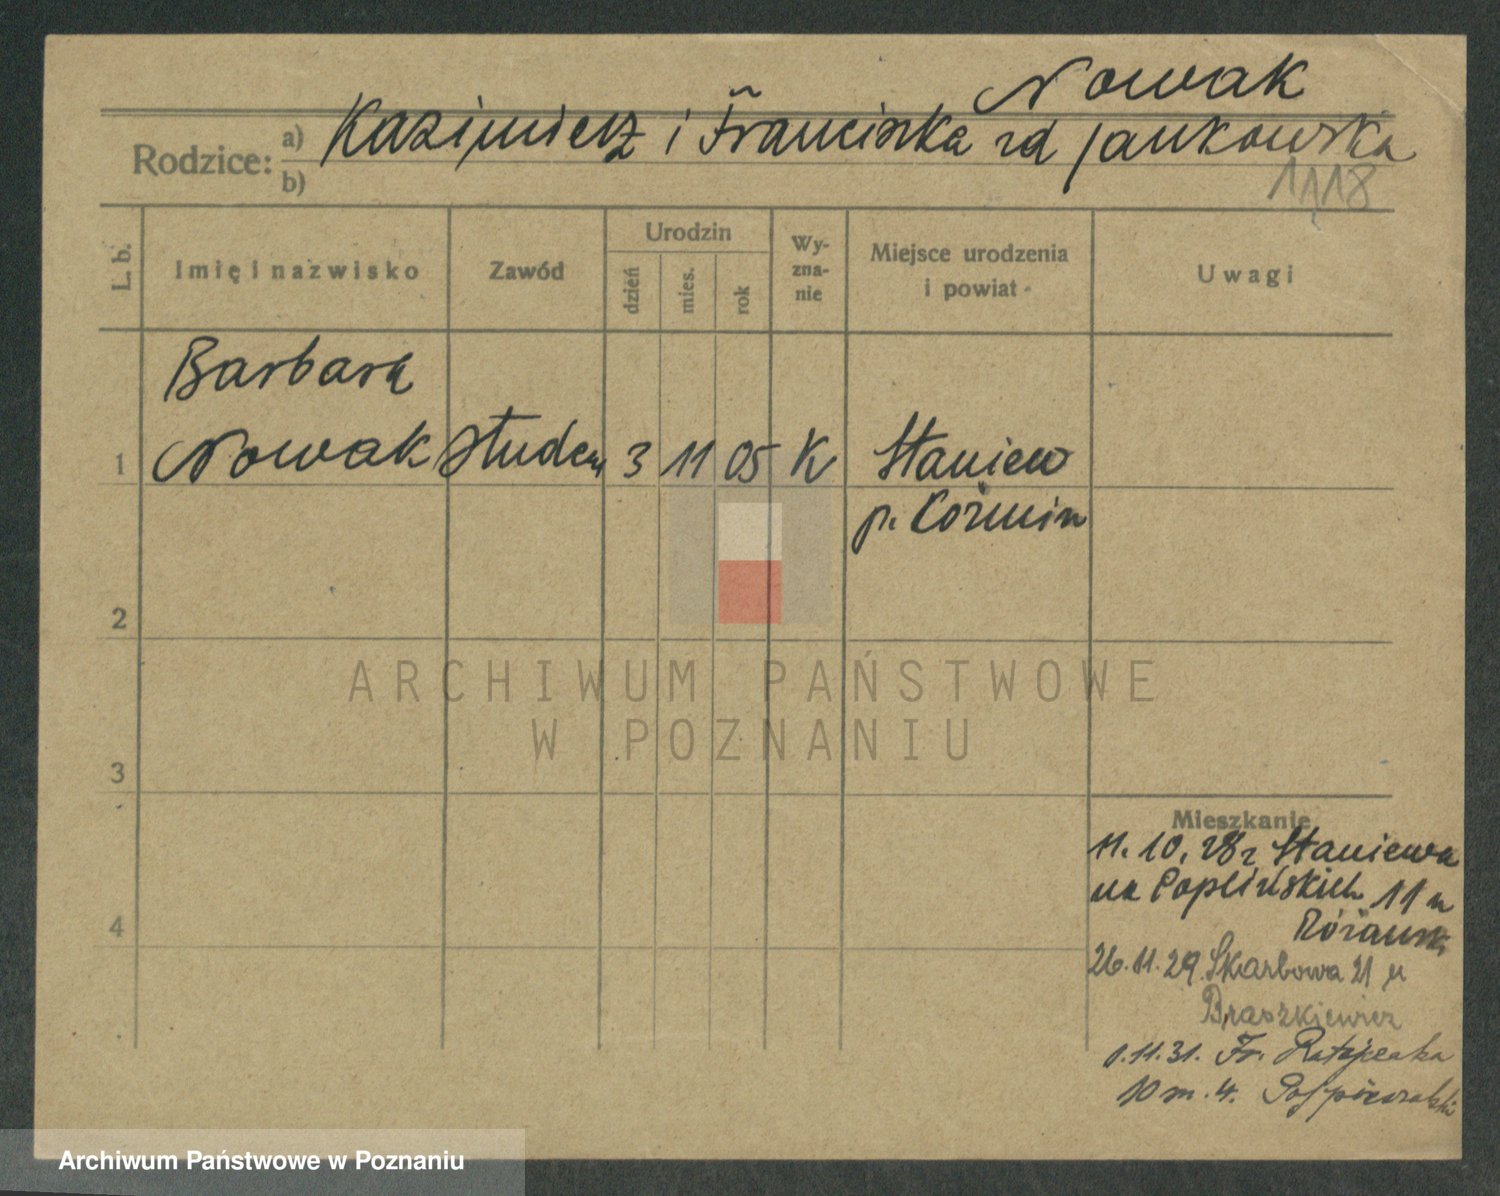 Nowak
Rodzice: a) Kazimierz i Franciszka zd Jankowska
b)
1118
L. b.
Imię i nazwisko
Zawód
Urodzin
dzień
mies.
rok
Wy-
zna-
nie
Miejsce urodzenia
i powiat
Uwagi
Barbara
1 Nowak Studen 3 11 05 K Staniew
p. Koźmin
2
ARCHIWUM PAŃSTWOWE
W POZNANIU
3
Mieszkanie
11. 10. 28 z Staniewa
na Poplińskich 11 u
4
26.11.29. Skarbowa 21 u
Braszkiewicz
1.11.31. Fr. Ratajczaka
10 m. 4.
Archiwum Państwowe w Poznaniu